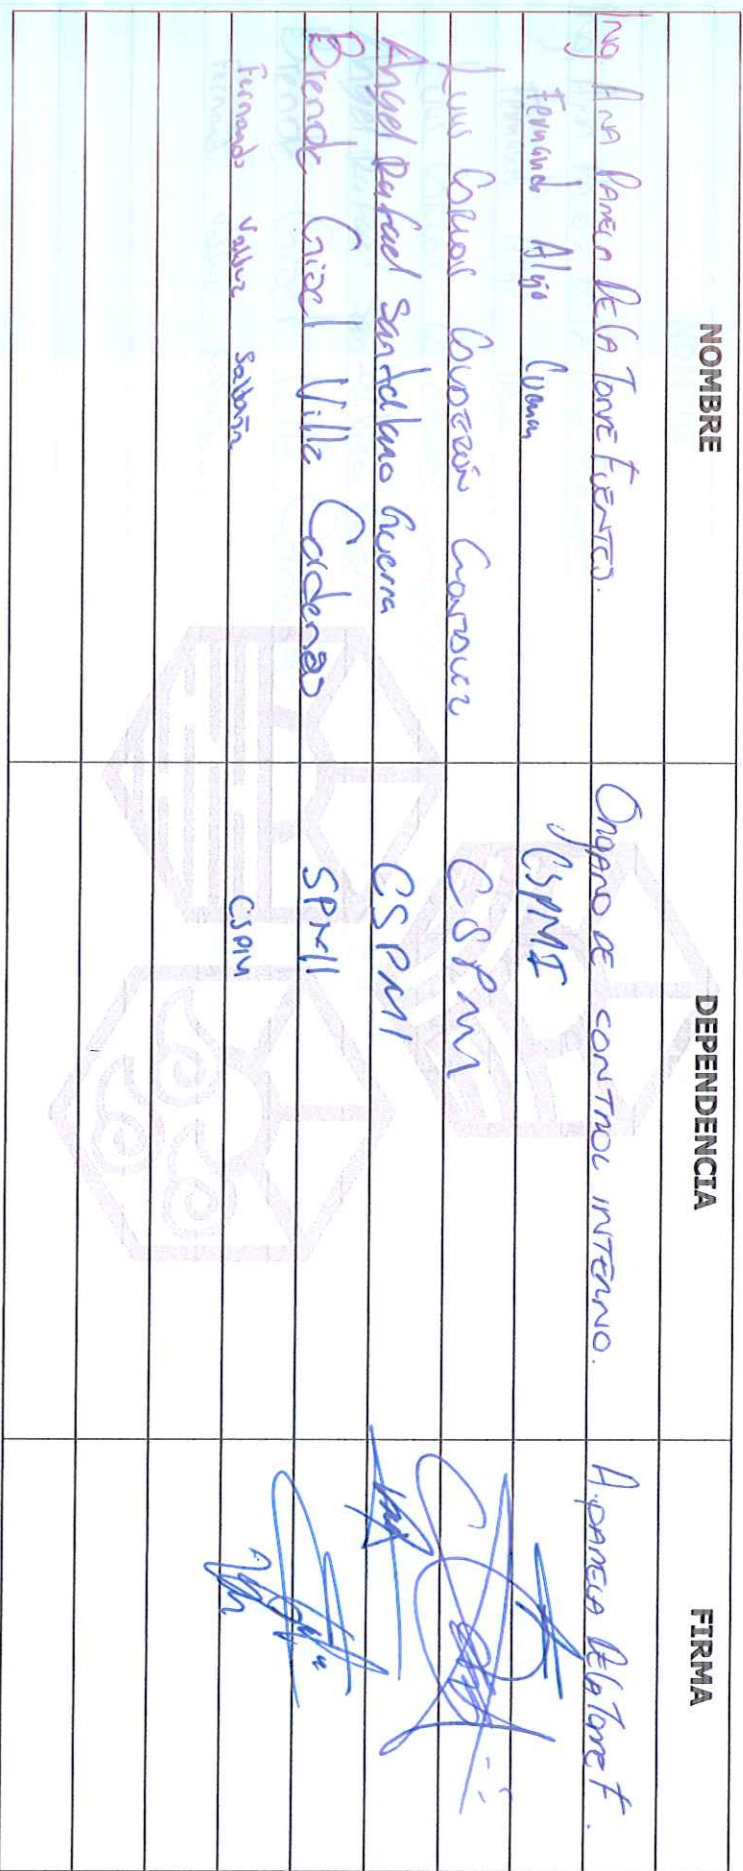 NOMBRE DEPENDENCIA FIRMA
Ing Ana Pamela De la Torre Fuentes. Organo de control interno. A. Pamela De la Torre F.
Fernando Alejo CSPMI
Luis Carlos Calderón CSPM
Angel Rafael Guerra CSPMI
Brenda Gizel Villa Cardenas SPMI
Fernando CSPM